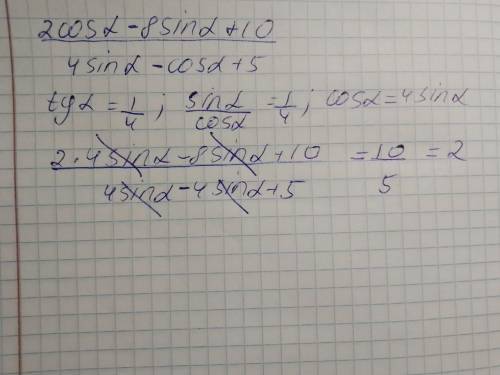 2cosα - 8sinα + 10
4sinα - cosα + 5
tgα = 1/4 ; sinα/cosα = 1/4 ; cosα = 4sinα
2·4sinα - 8sinα + 10 = 10 = 2
4sinα - 4sinα + 5 5